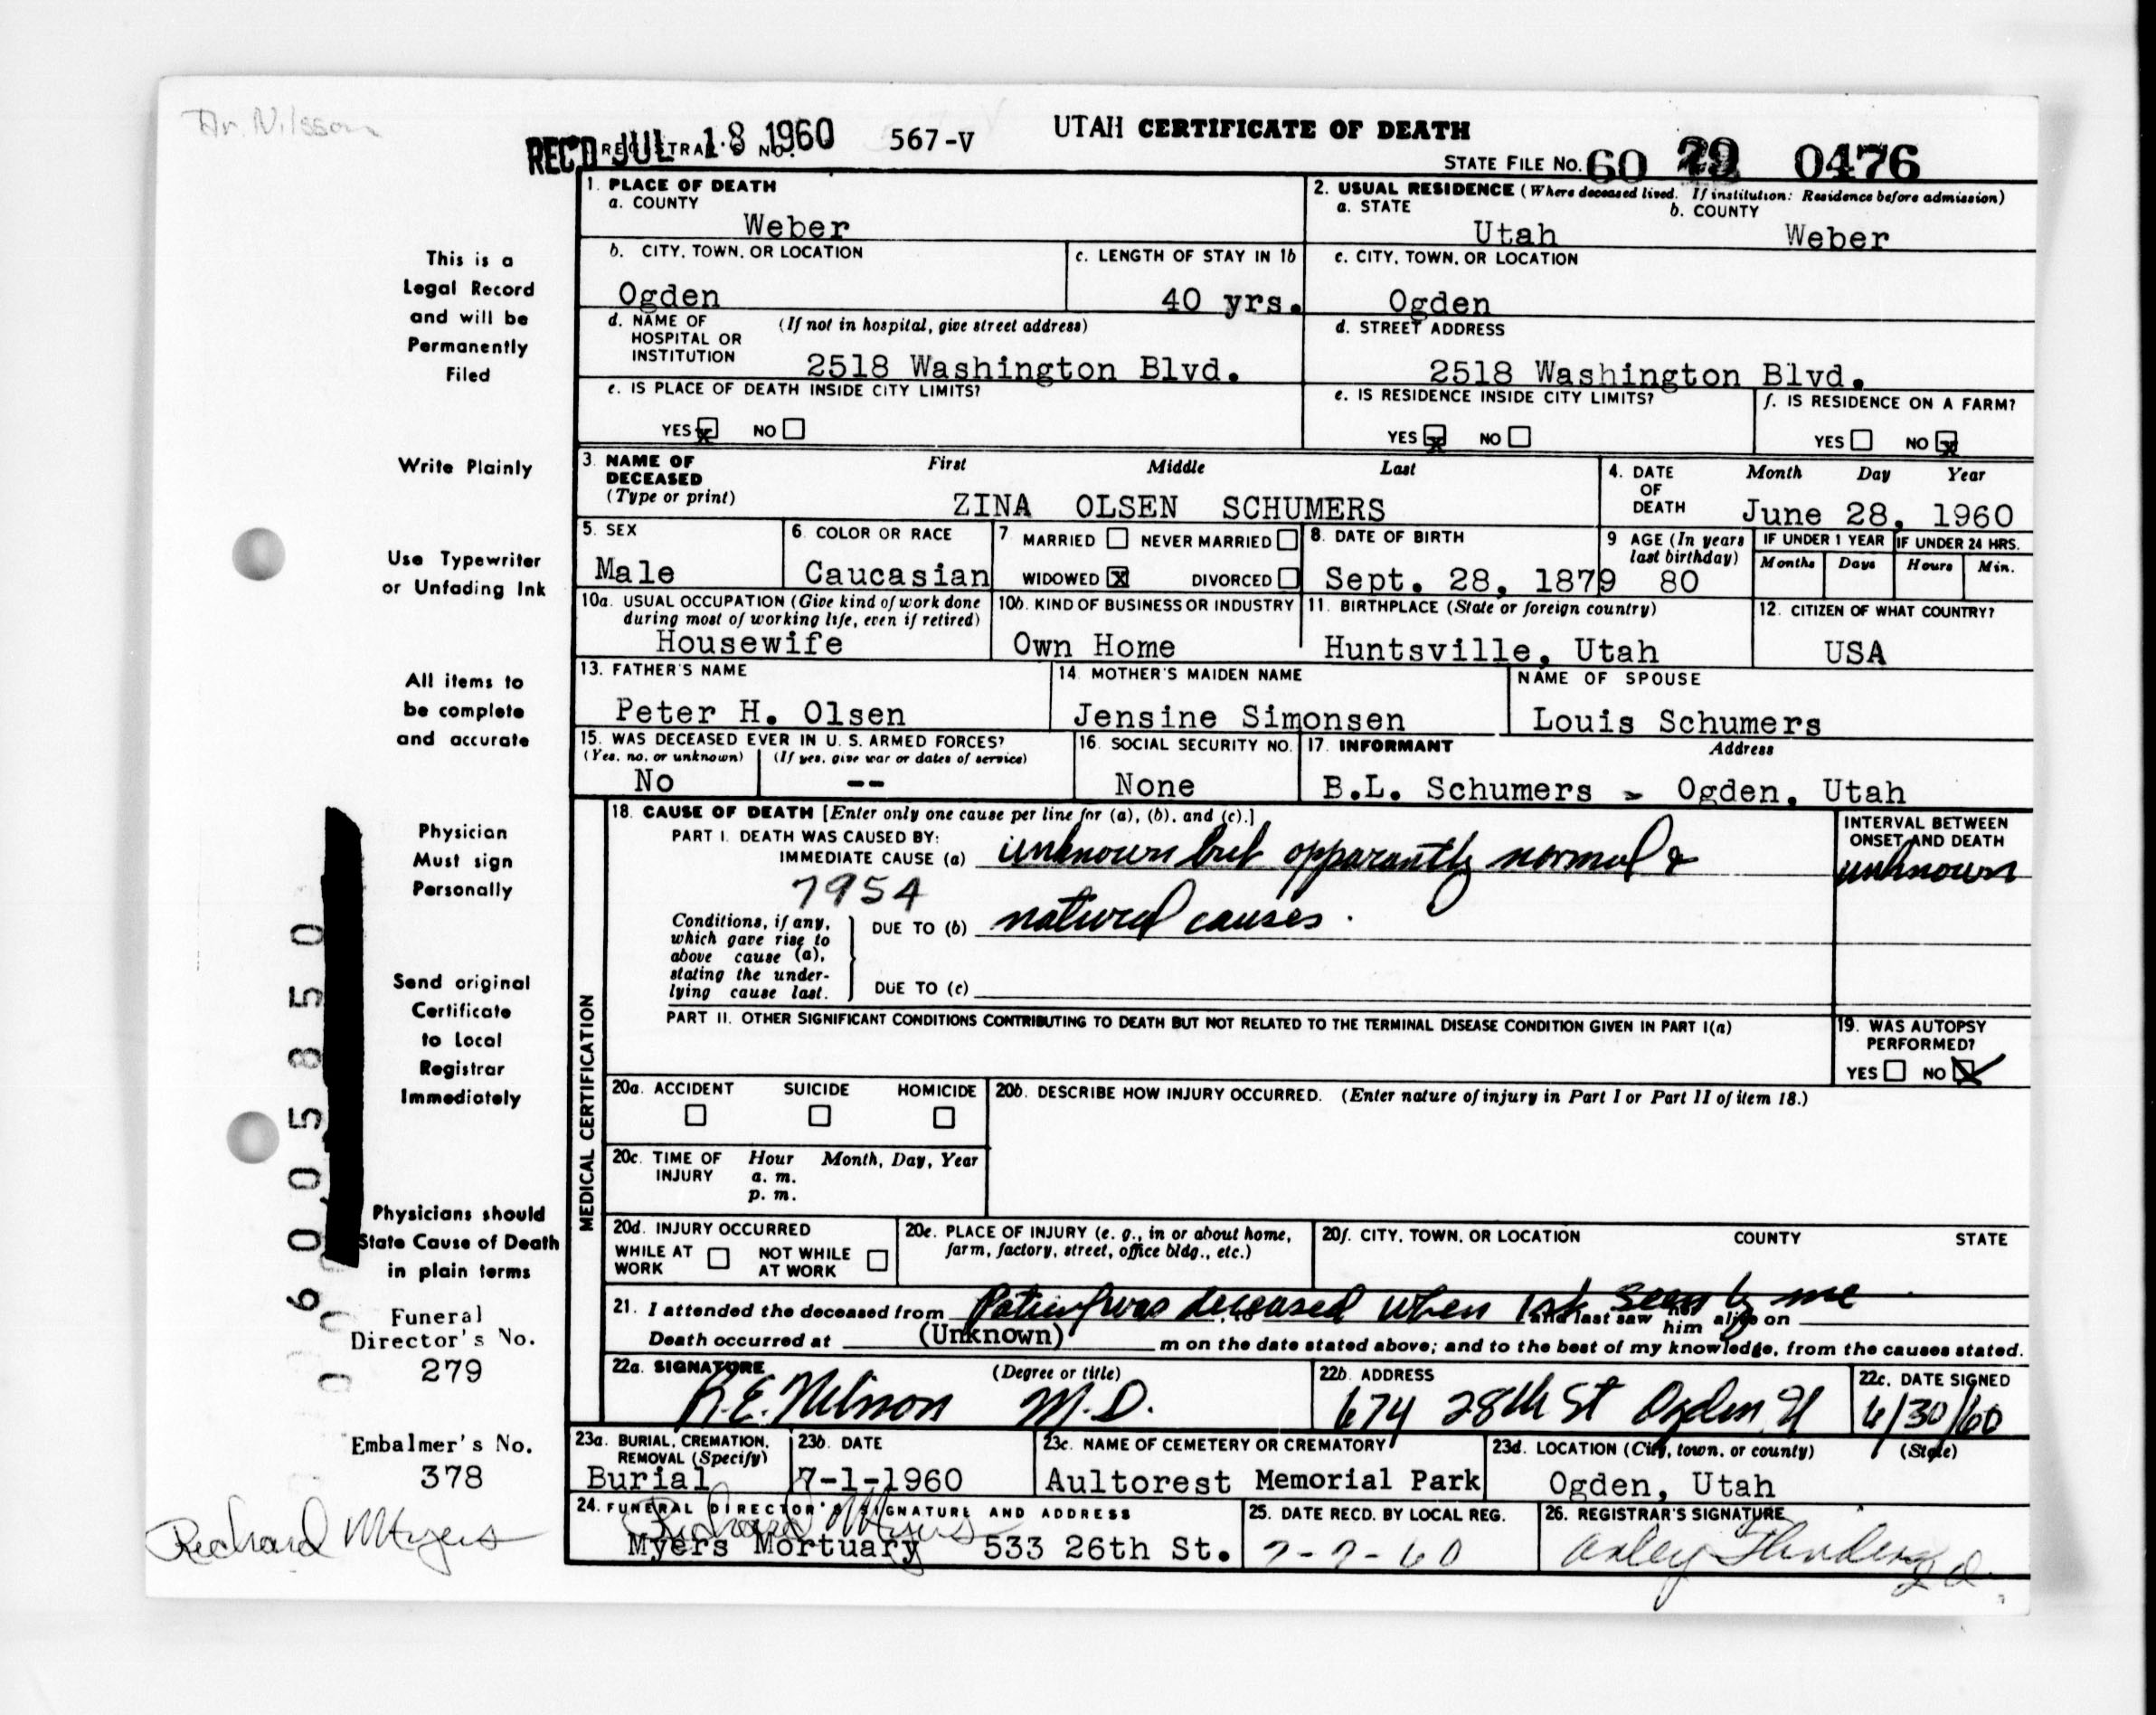 Dr. Nilsson
REC'D JUL 18 1960 567-V UTAH CERTIFICATE OF DEATH
REGISTRAR'S NO.
STATE FILE No. 60 29 0476
1. PLACE OF DEATH
a. COUNTY
Weber
2. USUAL RESIDENCE (Where deceased lived. If institution: Residence before admission)
a. STATE b. COUNTY
Utah Weber
b. CITY, TOWN, OR LOCATION c. LENGTH OF STAY IN 1b c. CITY, TOWN, OR LOCATION
Ogden 40 yrs. Ogden
d. NAME OF HOSPITAL OR INSTITUTION (If not in hospital, give street address) d. STREET ADDRESS
2518 Washington Blvd. 2518 Washington Blvd.
e. IS PLACE OF DEATH INSIDE CITY LIMITS? e. IS RESIDENCE INSIDE CITY LIMITS? f. IS RESIDENCE ON A FARM?
YES x NO YES x NO YES NO x
3. NAME OF DECEASED (Type or print) First Middle Last 4. DATE OF DEATH Month Day Year
ZINA OLSEN SCHUMERS June 28, 1960
5. SEX 6. COLOR OR RACE 7 MARRIED NEVER MARRIED 8. DATE OF BIRTH 9 AGE (In years last birthday) IF UNDER 1 YEAR IF UNDER 24 HRS.
Months Days Hours Min.
Male Caucasian WIDOWED x DIVORCED Sept. 28, 1879 80
10a. USUAL OCCUPATION (Give kind of work done during most of working life, even if retired) 10b. KIND OF BUSINESS OR INDUSTRY 11. BIRTHPLACE (State or foreign country) 12. CITIZEN OF WHAT COUNTRY?
Housewife Own Home Huntsville, Utah USA
13. FATHER'S NAME 14. MOTHER'S MAIDEN NAME NAME OF SPOUSE
Peter H. Olsen Jensine Simonsen Louis Schumers
15. WAS DECEASED EVER IN U. S. ARMED FORCES? 16. SOCIAL SECURITY NO. 17. INFORMANT Address
(Yes, no, or unknown) (If yes, give war or dates of service)
No -- None B.L. Schumers - Ogden, Utah
MEDICAL CERTIFICATION
18. CAUSE OF DEATH [Enter only one cause per line for (a), (b), and (c).]
PART I. DEATH WAS CAUSED BY:
IMMEDIATE CAUSE (a) unknown but opparantly normal &
INTERVAL BETWEEN ONSET AND DEATH
unknown
7954
Conditions, if any, which gave rise to above cause (a), stating the underlying cause last.
DUE TO (b) natural causes.
DUE TO (c)
PART II. OTHER SIGNIFICANT CONDITIONS CONTRIBUTING TO DEATH BUT NOT RELATED TO THE TERMINAL DISEASE CONDITION GIVEN IN PART I(a)
19. WAS AUTOPSY PERFORMED?
YES NO
20a. ACCIDENT SUICIDE HOMICIDE 20b. DESCRIBE HOW INJURY OCCURRED. (Enter nature of injury in Part I or Part II of item 18.)
20c. TIME OF INJURY Hour Month, Day, Year
a. m.
p. m.
20d. INJURY OCCURRED 20e. PLACE OF INJURY (e. g., in or about home, farm, factory, street, office bldg., etc.) 20f. CITY, TOWN, OR LOCATION COUNTY STATE
WHILE AT WORK NOT WHILE AT WORK
21. I attended the deceased from Patient was deceased when 1st seen by me
, to and last saw her him alive on
Death occurred at (Unknown) m on the date stated above; and to the best of my knowledge, from the causes stated.
22a. SIGNATURE (Degree or title) 22b. ADDRESS 22c. DATE SIGNED
R.E. Nilsson M.D. 674 28th St Ogden U 6/30/60
23a. BURIAL, CREMATION, REMOVAL (Specify) 23b. DATE 23c. NAME OF CEMETERY OR CREMATORY 23d. LOCATION (City, town, or county) (State)
Burial 7-1-1960 Aultorest Memorial Park Ogden, Utah
24. FUNERAL DIRECTOR'S SIGNATURE AND ADDRESS 25. DATE RECD. BY LOCAL REG. 26. REGISTRAR'S SIGNATURE
Richard Myers
Myers Mortuary 533 26th St. 7-7-60
This is a
Legal Record
and will be
Permanently
Filed
Write Plainly
Use Typewriter
or Unfading Ink
All items to
be complete
and accurate
Physician
Must sign
Personally
Send original
Certificate
to Local
Registrar
Immediately
Physicians should
State Cause of Death
in plain terms
Funeral
Director's No.
279
Embalmer's No.
378
Richard Myers
060005850